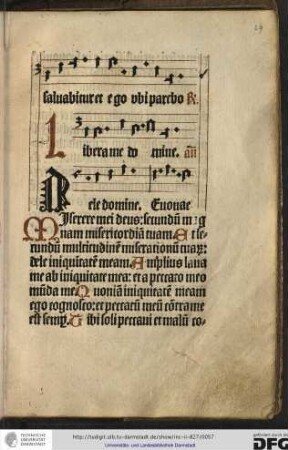 saluabitur et ego vbi parebo R.
Libera me do mine. añ
Dele domine. Euouae
MIserere mei deus: secundū mag
nam misericordiā tuam. Et se
cundū multitudinē miserationū tuaȝ:
dele iniquitatē meam. Amplius laua
me ab iniquitate mea: et a peccato meo
mūda me. Quoniā iniquitatē meam
ego cognosco: et peccatū meū cōtra me
est semp. Tibi soli peccaui et malū co-
http://tudigit.ulb.tu-darmstadt.de/show/inc-ii-827/0057
Universitäts- und Landesbibliothek Darmstadt
TECHNISCHE
UNIVERSITÄT
DARMSTADT
gefördert durch die
DFG